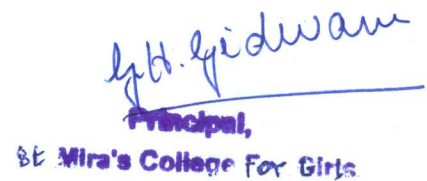 G.H. Gidwani
Principal,
St Mira's College For Girls